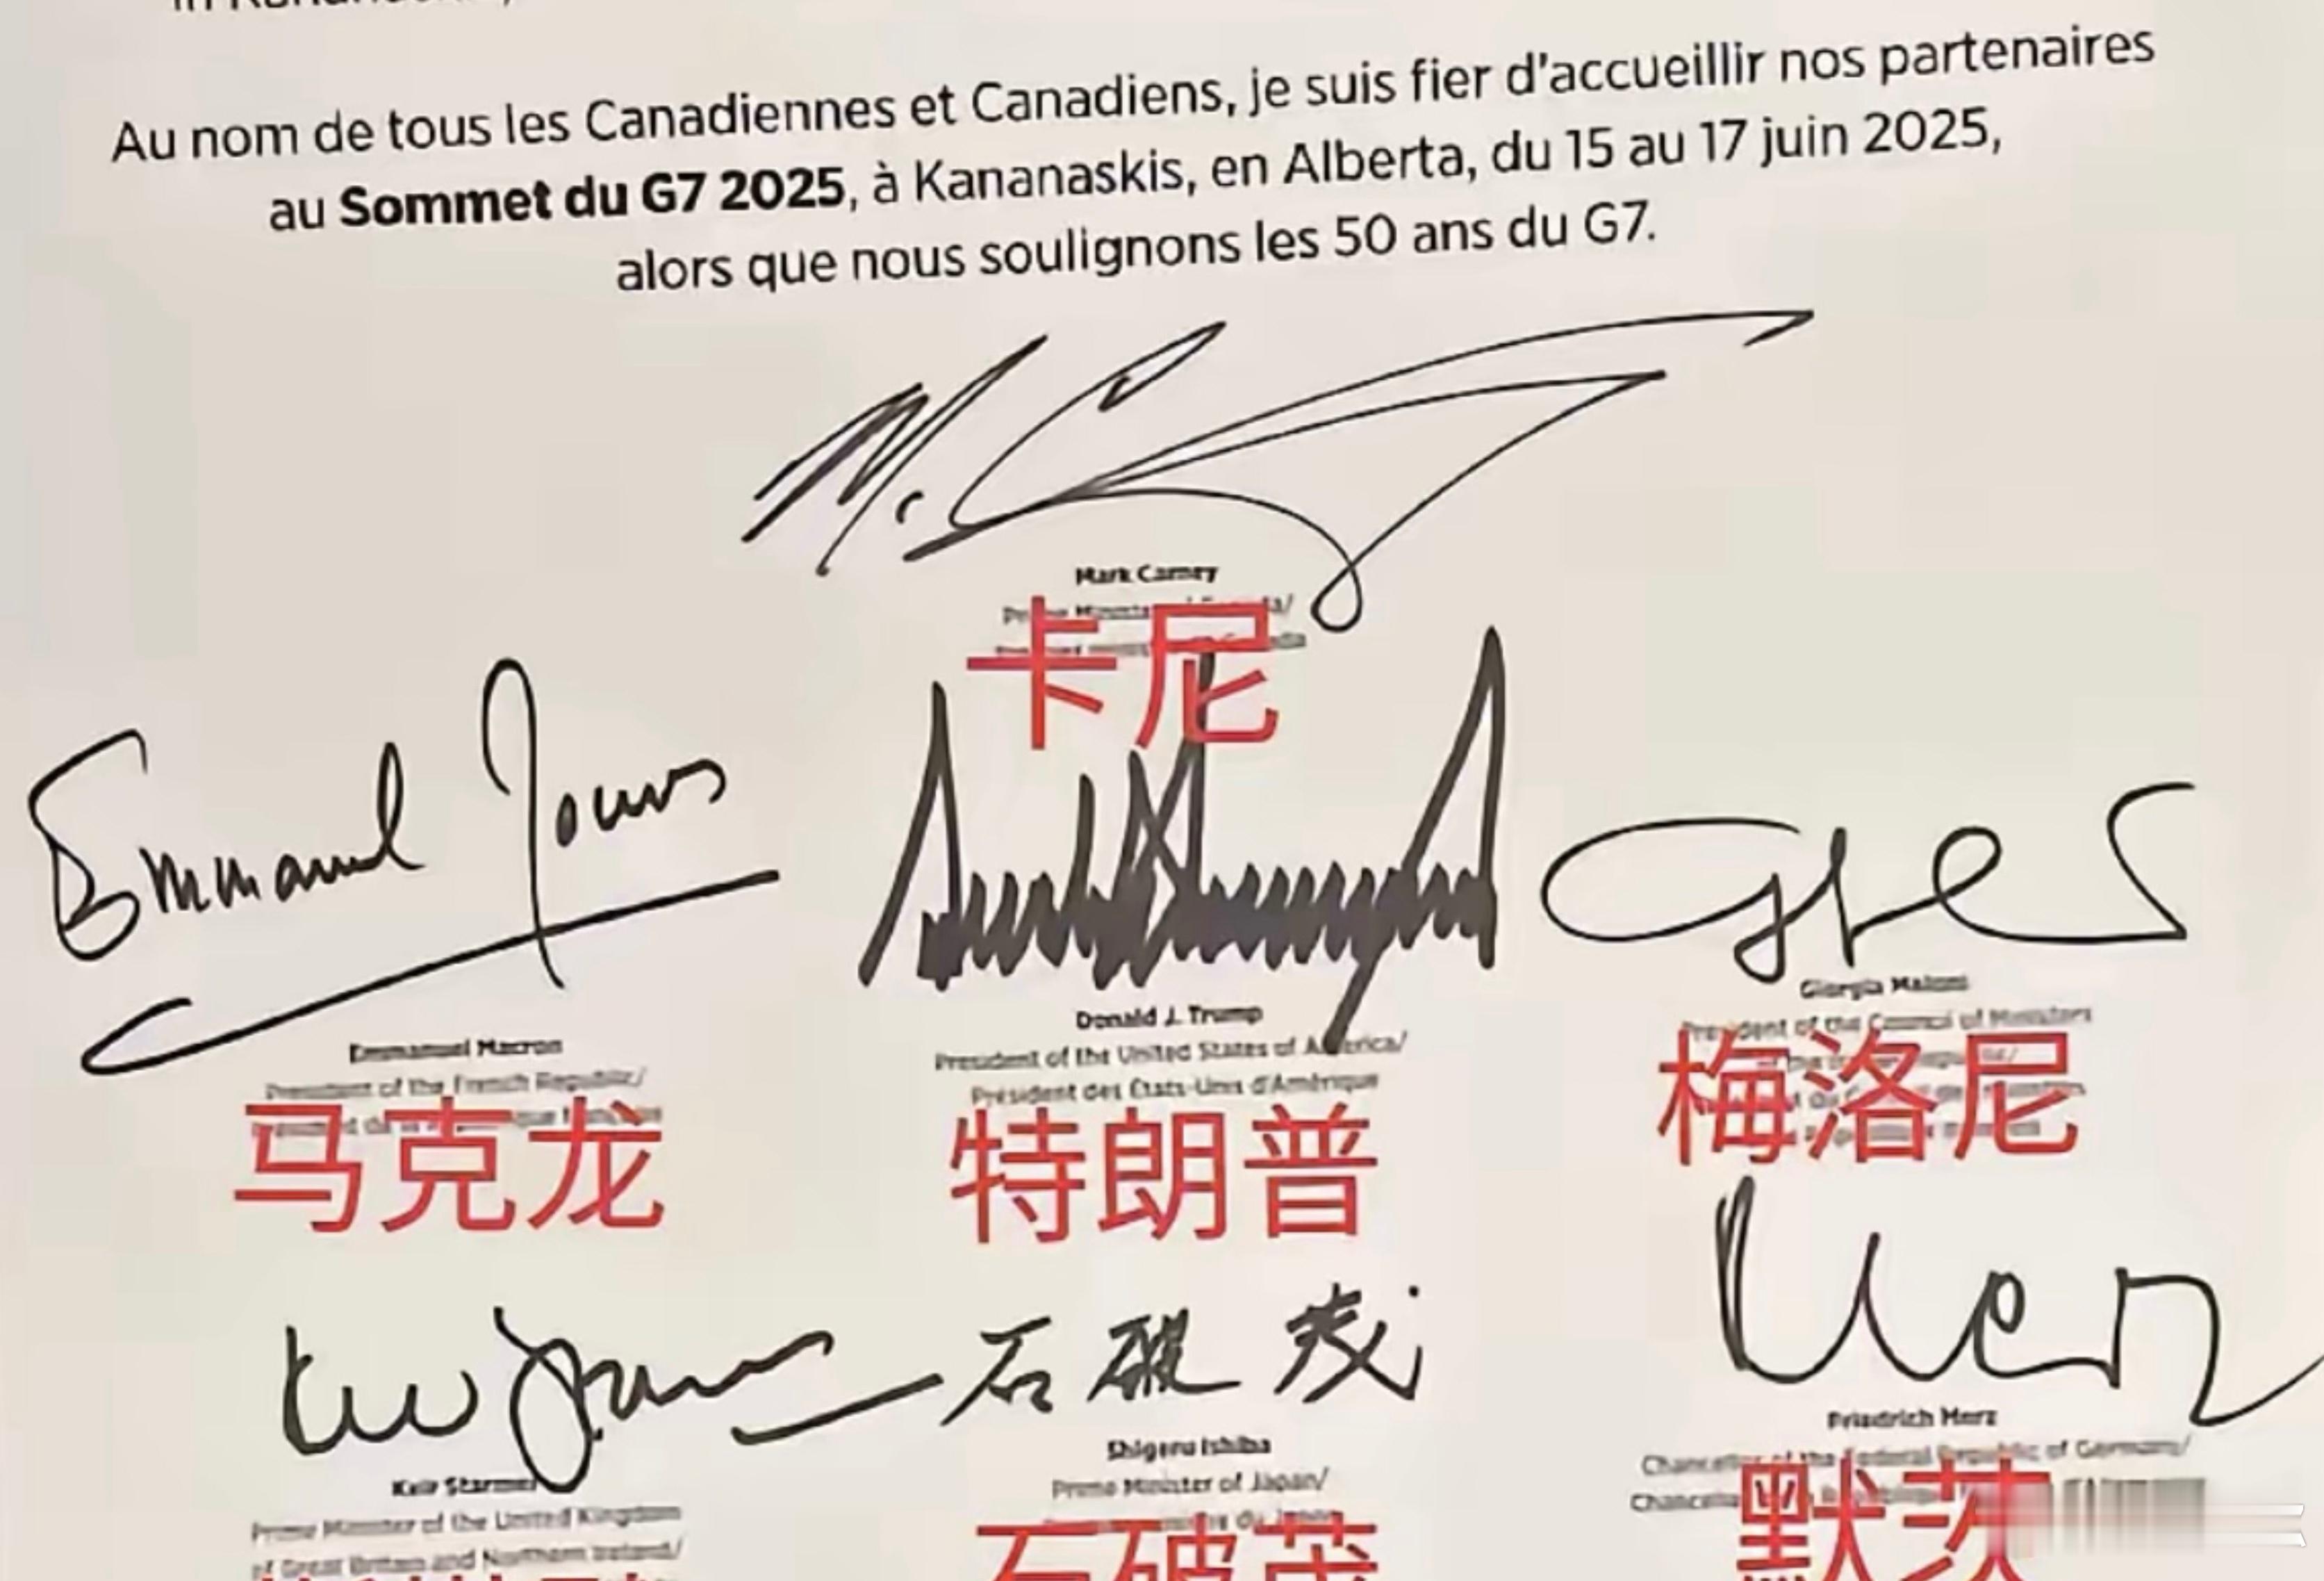 Au nom de tous les Canadiennes et Canadiens, je suis fier d'accueillir nos partenaires
au Sommet du G7 2025, à Kananaskis, en Alberta, du 15 au 17 juin 2025,
alors que nous soulignons les 50 ans du G7.
M. C
Mark Carney
卡尼
Emmanuel
Emmanuel Macron
President of the French Republic/
马克龙
Donald J. Trump
President of the United States of America/
Président des États-Unis d'Amérique
特朗普
Giorgia Meloni
President of the Council of Ministers
梅洛尼
Keir Starmer
Prime Minister of the United Kingdom
of Great Britain and Northern Ireland/
石破茂
Shigeru Ishiba
Prime Minister of Japan/
石破茂
Merz
Friedrich Merz
Chancellor of the Federal Republic of Germany/
默茨